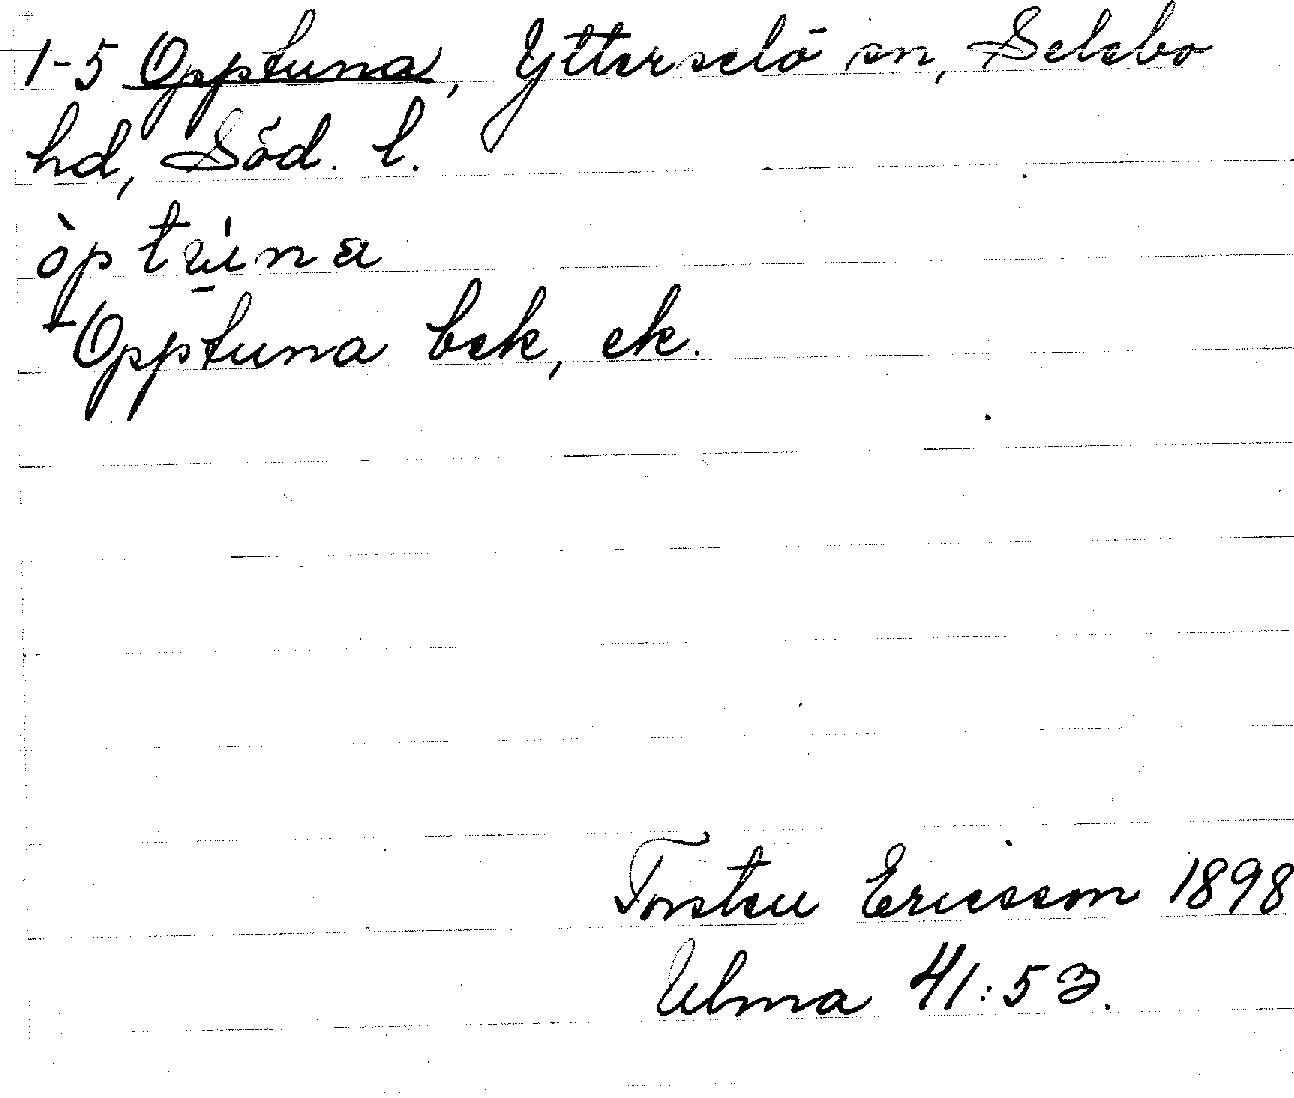 1-5 Opptuna, Ytterselö sn, Selebo
hd, Söd. l.
òptú̱na
Opptuna bek, ek.
Torsten Ericsson 1898
Ulma 41:53.